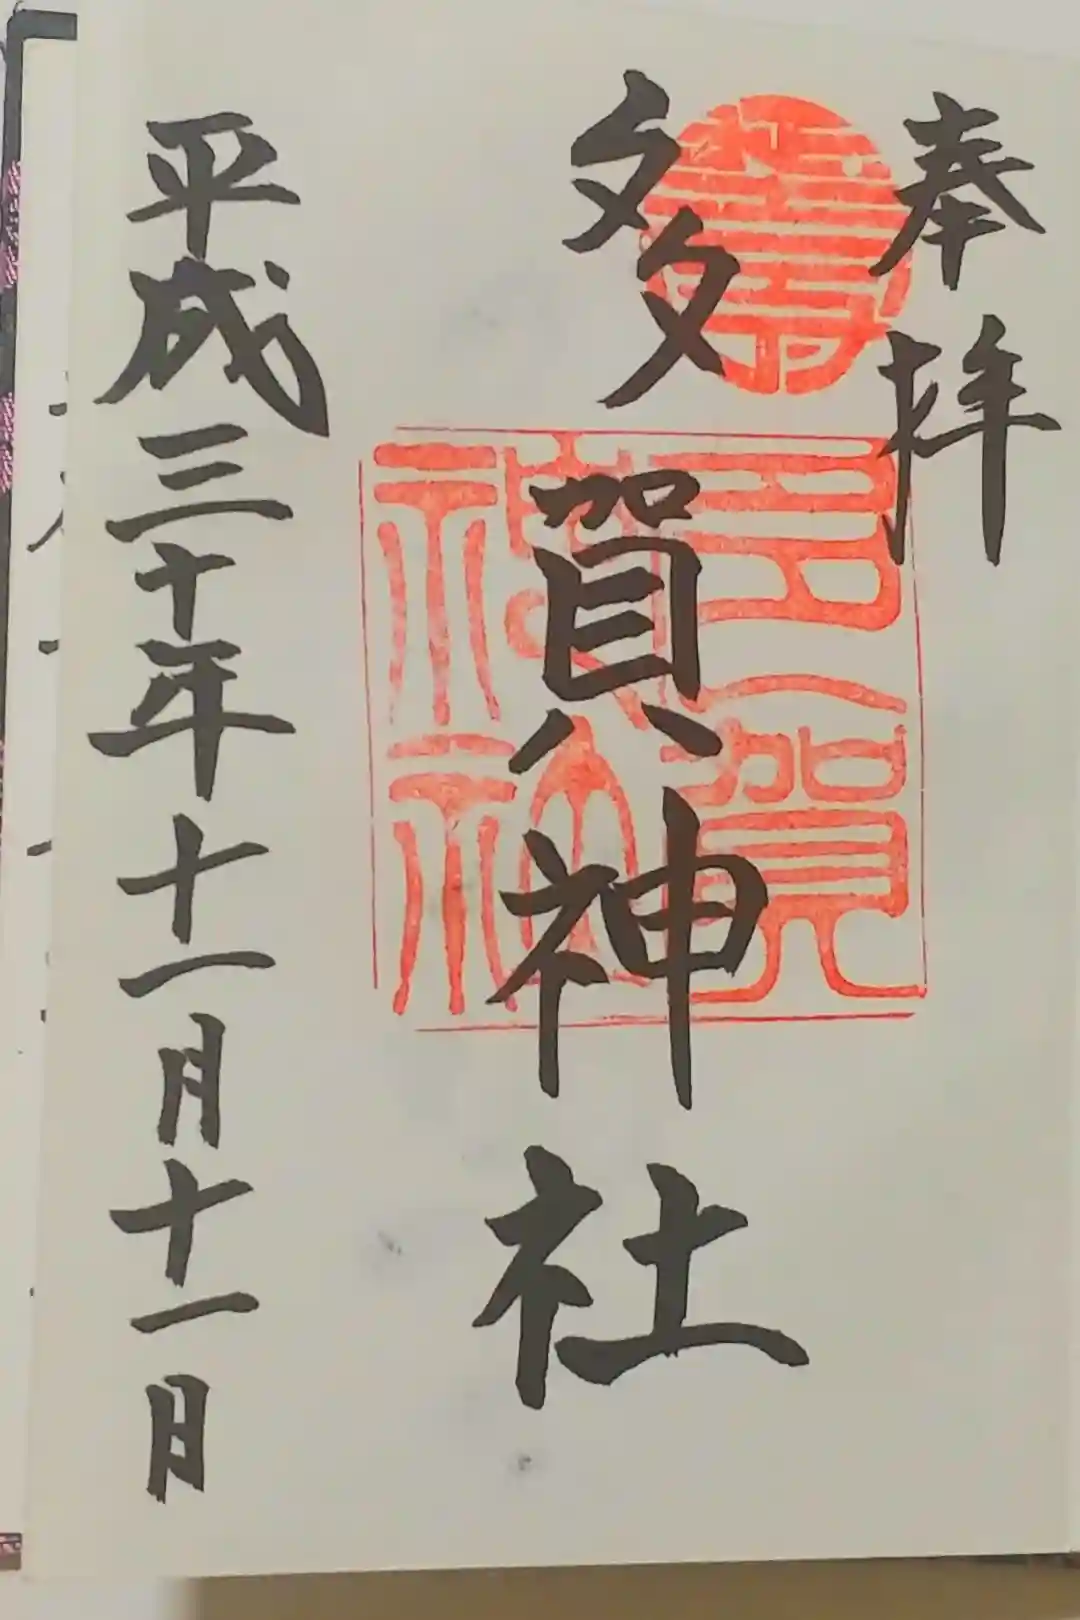 奉拝
多賀神社
多賀神社
平成三十年十一月十一日